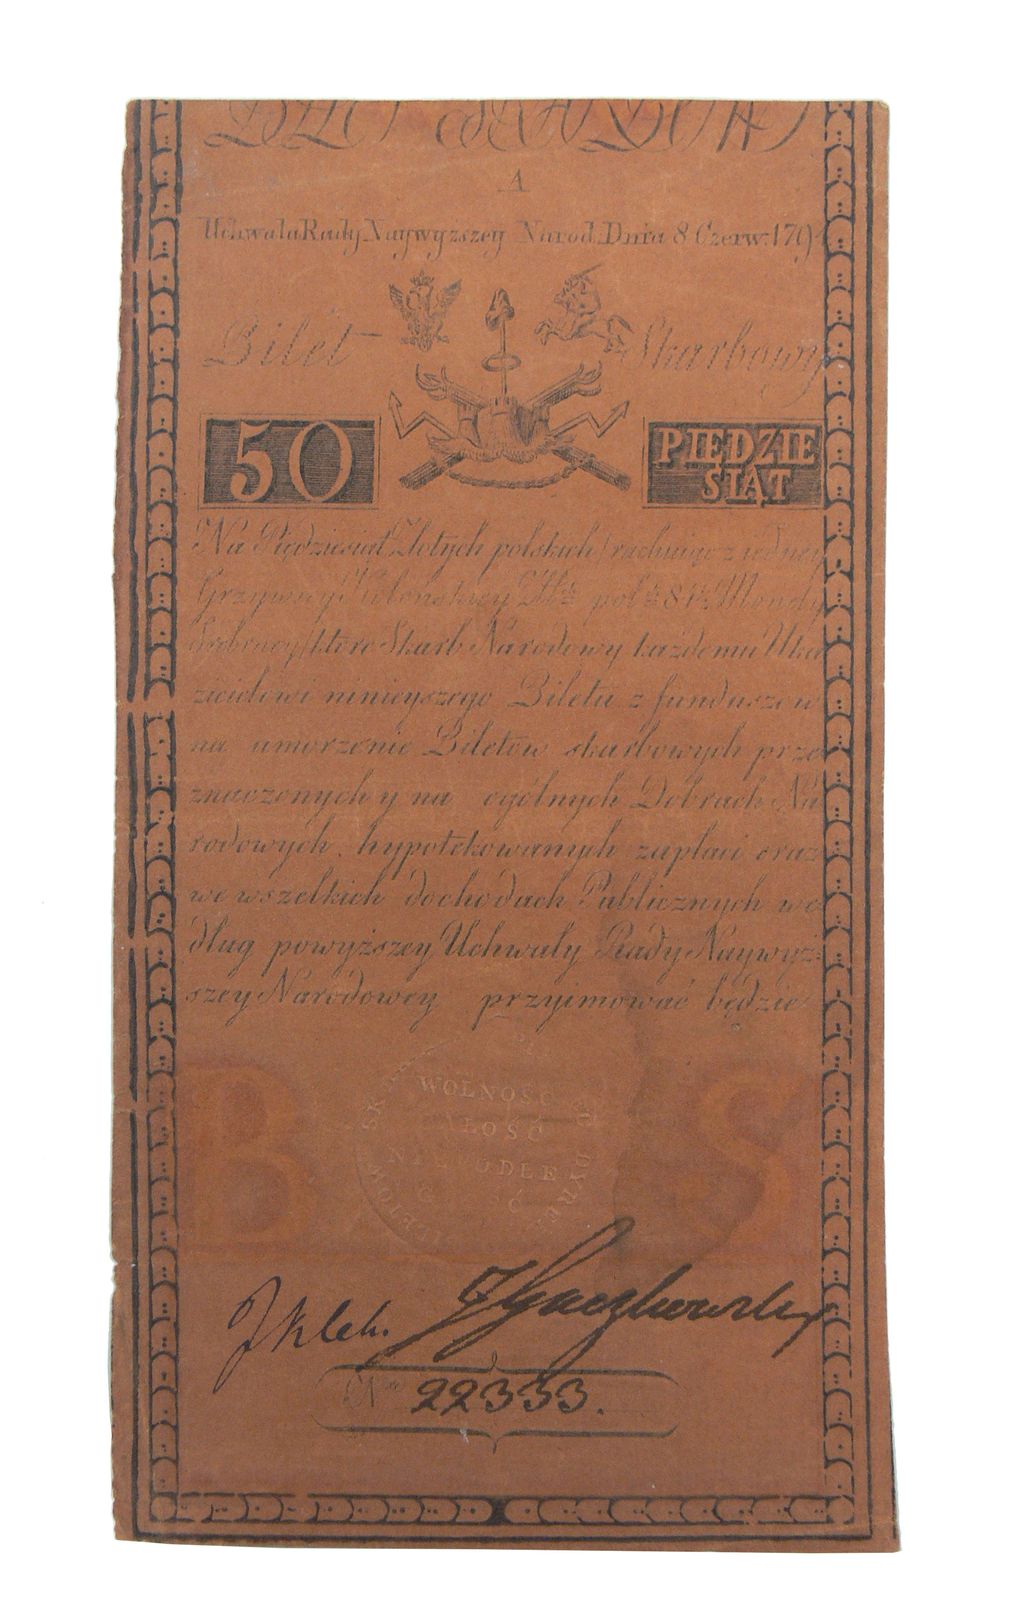 A
Uchwała Rady Naywyzszey Narod. Dnia 8 Czerw: 179
Bilet Skarbowy
50 PIĘDZIE
SIĄT
Na Pięćdziesiąt Złotych polskich /rachuiąc z iedney
Grzywny Kolońskiey Zł: pol: 84½ Monety
Srebrney/ które Skarb Narodowy każdemu Uka
zicielowi ninieyszego Biletu z funduszow
na umorzenie Biletów skarbowych prze
znaczonych y na ogólnych Dobrach Na
rodowych hypotekowanych zapłaci oraz
we wszelkich dochodach Publicznych we
dług powyższey Uchwały Rady Naywyż
szey Narodowey przyimować będzie
WOLNOSC
CAŁOSC
NIEPODLE
GŁOSC
B S
N 22333.